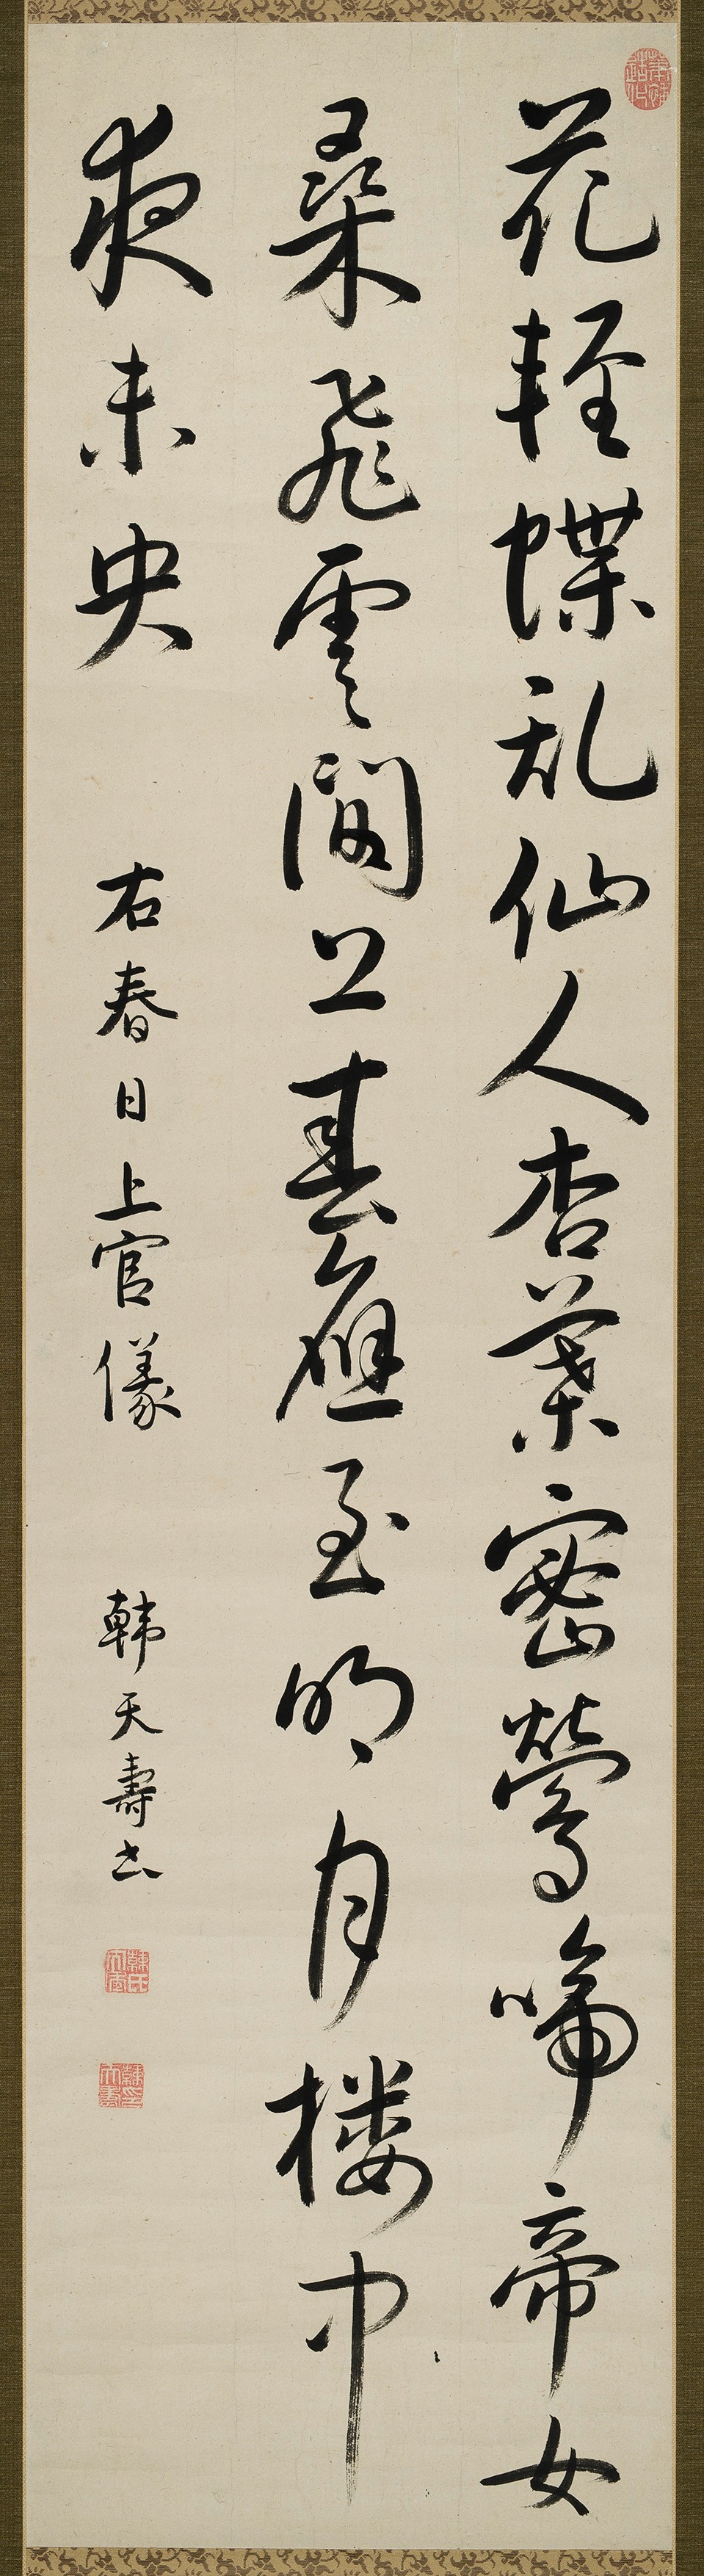 花軽蝶乱仙人杏葉密鶯啼帝女
桑飛雲閣上春應至明月楼中
夜未央 右春日上官儀 韓天壽書